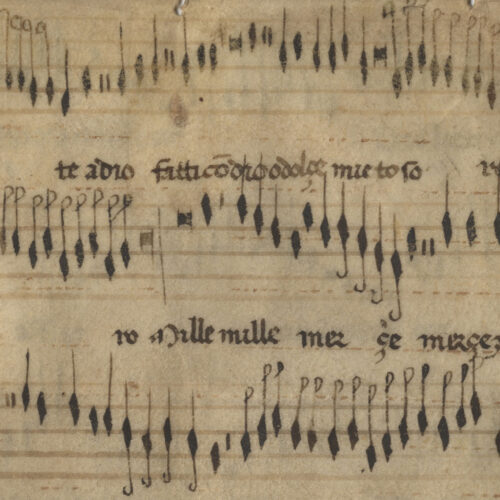 te adio fatti cō dio o dolçe mie toso r
ro Mille mille mer çe merçer